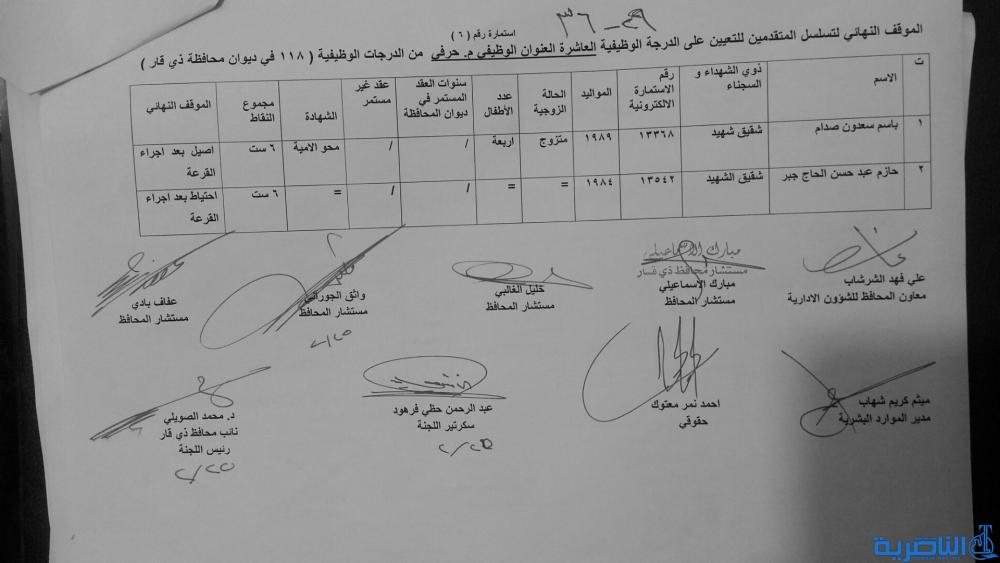 ٣٦ - ٤٩
استمارة رقم ( ٦ )
الموقف النهائي لتسلسل المتقدمين للتعيين على الدرجة الوظيفية العاشرة العنوان الوظيفي م. حرفي من الدرجات الوظيفية ( ١١٨ في ديوان محافظة ذي قار )
ت | الاسم | ذوي الشهداء و السجناء | رقم الاستمارة الالكترونية | المواليد | الحالة الزوجية | عدد الأطفال | سنوات العقد المستمر في ديوان المحافظة | عقد غير مستمر | الشهادة | مجموع النقاط | الموقف النهائي
١ | باسم سعدون صدام | شقيق شهيد | ١٣٣٦٨ | ١٩٨٩ | متزوج | اربعة | / | / | محو الامية | ٦ ست | اصيل بعد اجراء القرعة
٢ | حازم عبد حسن الحاج جبر | شقيق الشهيد | ١٣٥٤٢ | ١٩٨٤ | = | = | / | / | = | ٦ ست | احتياط بعد اجراء القرعة
علي فهد الشرشاب
معاون المحافظ للشؤون الادارية
مبارك الاسماعيلي
مستشار محافظ ذي قار
مبارك الاسماعيلي
مستشار المحافظ
خليل الغالبي
مستشار المحافظ
واثق الجوراني
مستشار المحافظ
٢/٢٥
عفاف بادي
مستشار المحافظ
ميثم كريم شهاب
مدير الموارد البشرية
احمد نمر معتوك
حقوقي
عبد الرحمن حظي فرهود
سكرتير اللجنة
٢/٢٥
د. محمد الصويلي
نائب محافظ ذي قار
رئيس اللجنة
٢/٢٥
الناصرية